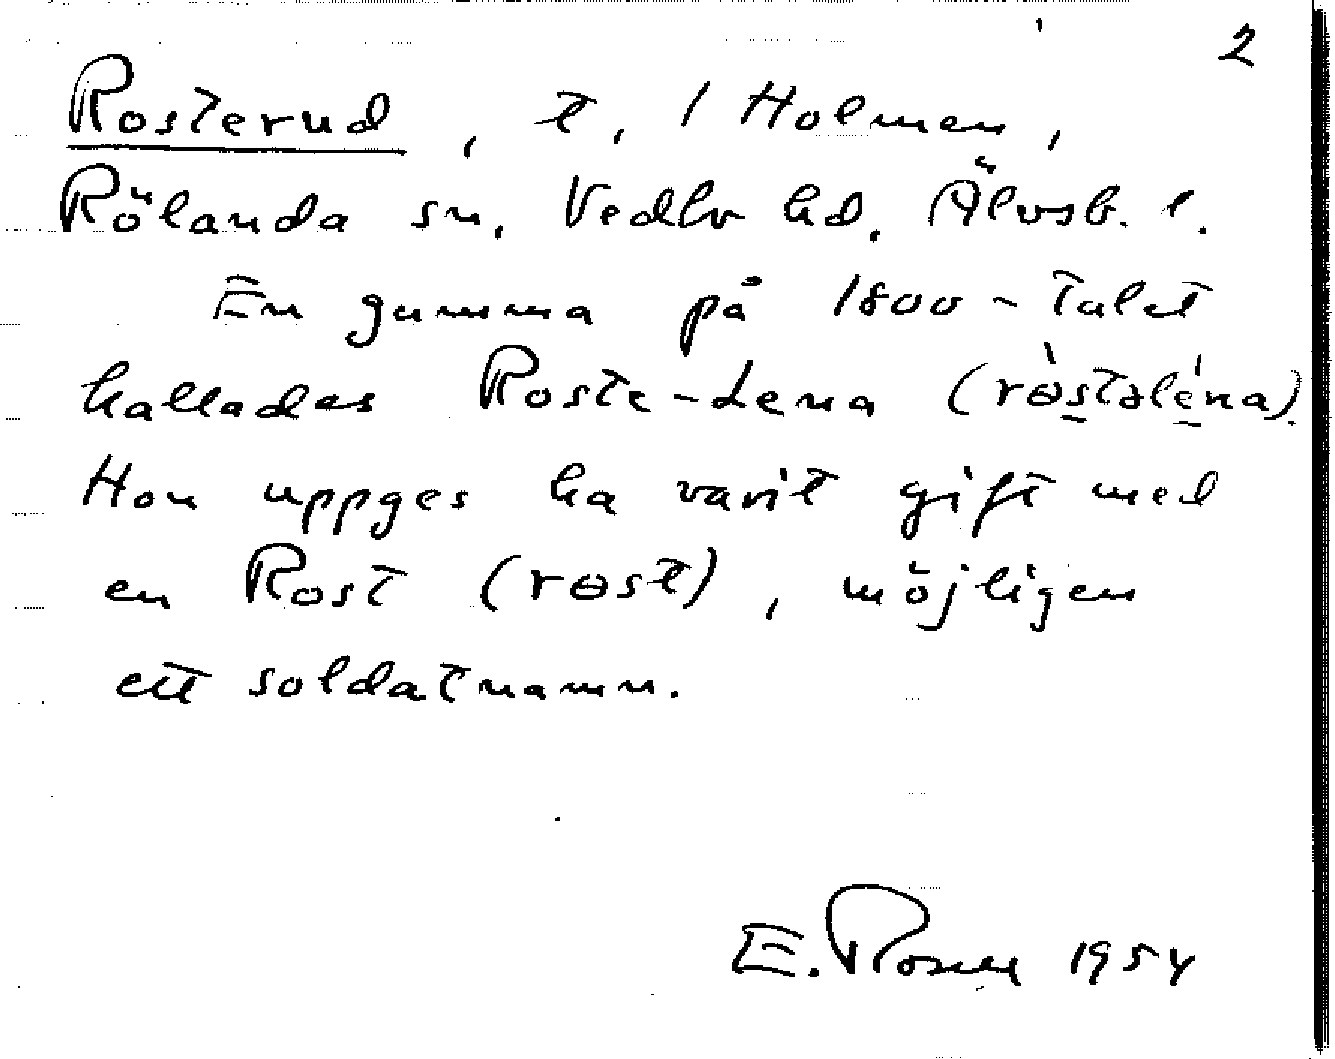 2
Rosterud, t, / Holmen,
Rölanda sn, Vedbo hd, Älvsb. l.
En gumma på 1800-talet
kallades Roste-Lena (rɵ̀stəléna).
Hon uppges ha varit gift med
en Rost (rɵst), möjligen
ett soldatnamn.
E. 1954